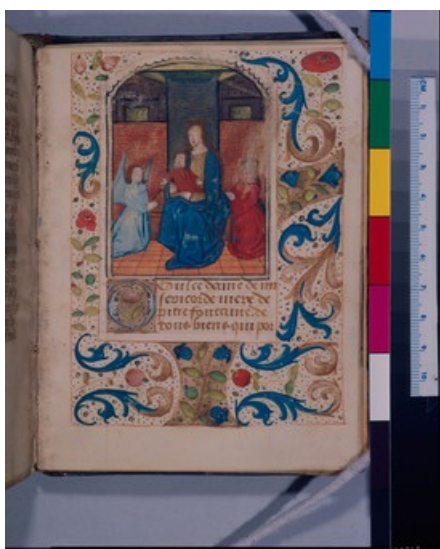 Doulce dame de mi
sericorde mere de
pitie fontaine de
tous biens qui por